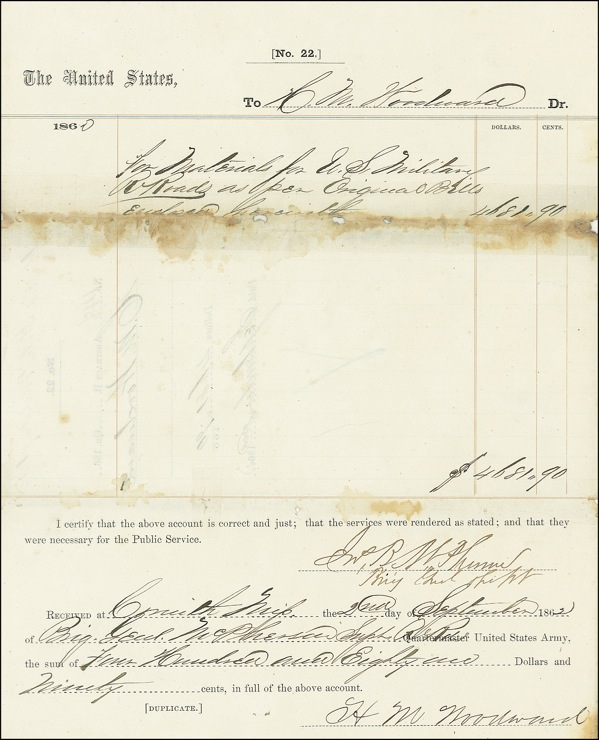 [No. 22.]
The United States,
To H. M. Woodward Dr.
1862
DOLLARS. CENTS.
For Materials for U. S. Military
R Roads as Open Original Bills
herewith 481.90
$ 481.90
I certify that the above account is correct and just; that the services were rendered as stated; and that they
were necessary for the Public Service.
Brig Genl Supt
RECEIVED at Corinth Miss. the 2nd day of September 1862
of Brig. Genl McPherson Supt. R. R. Quartermaster United States Army,
the sum of Four Hundred and Eighty one Dollars and
Ninety cents, in full of the above account.
[DUPLICATE.]
H M Woodward